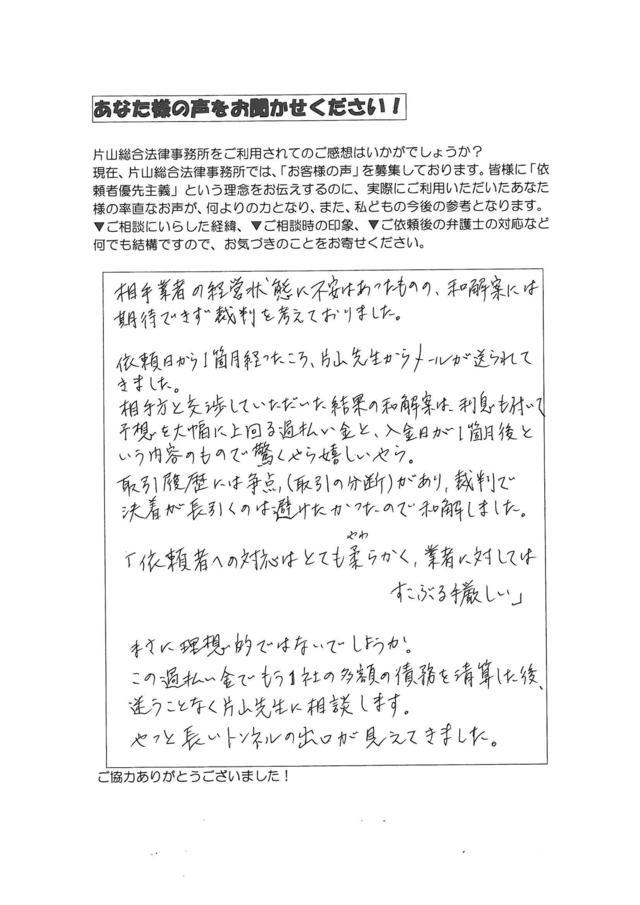 あなた様の声をお聞かせください！
片山総合法律事務所をご利用されてのご感想はいかがでしょうか？
現在、片山総合法律事務所では、「お客様の声」を募集しております。皆様に「依
頼者優先主義」という理念をお伝えするのに、実際にご利用いただいたあなた
様の率直なお声が、何よりの力となり、また、私どもの今後の参考となります。
▼ご相談にいらした経緯、▼ご相談時の印象、▼ご依頼後の弁護士の対応など
何でも結構ですので、お気づきのことをお寄せください。
相手業者の経営状態に不安はあったものの、和解案には
期待できず裁判を考えておりました。
依頼日から1箇月経ったころ、片山先生からメールが送られて
きました。
相手方と交渉していただいた結果の和解案は、利息も付いて
予想を大幅に上回る過払い金と、入金日が1箇月後と
いう内容のもので驚くやら嬉しいやら。
取引履歴には争点,(取引の分断)があり、裁判で
決着が長引くのは避けたかったので和解しました。
やわ
「依頼者への対応はとても柔らかく、業者に対しては
すこぶる手厳しい」
まさに理想的ではないでしょうか。
この過払い金でもう1社の多額の債務を清算した後、
迷うことなく片山先生に相談します。
やっと長いトンネルの出口が見えてきました。
ご協力ありがとうございました！